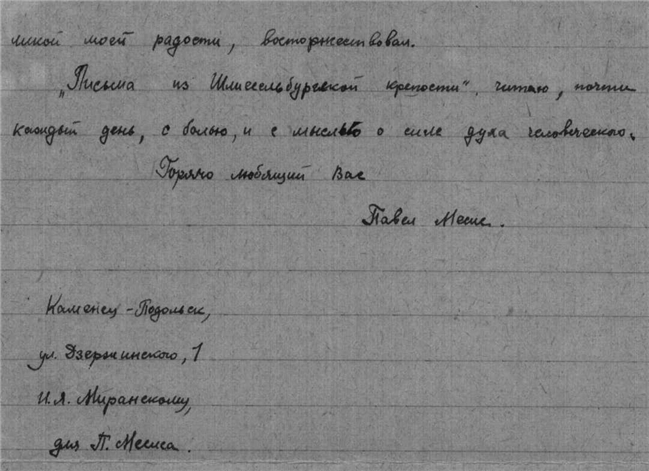 ликой моей радости, восторжествовал.
„Письма из Шлиссельбургской крепости“ читаю, почти
каждый день, с болью, и с мыслью о силе духа человеческого.
Горячо любящий Вас
Павел Месис.
Каменец-Подольск,
ул. Дзержинского, 1
И.Я. Миранскому,
для П. Месиса.